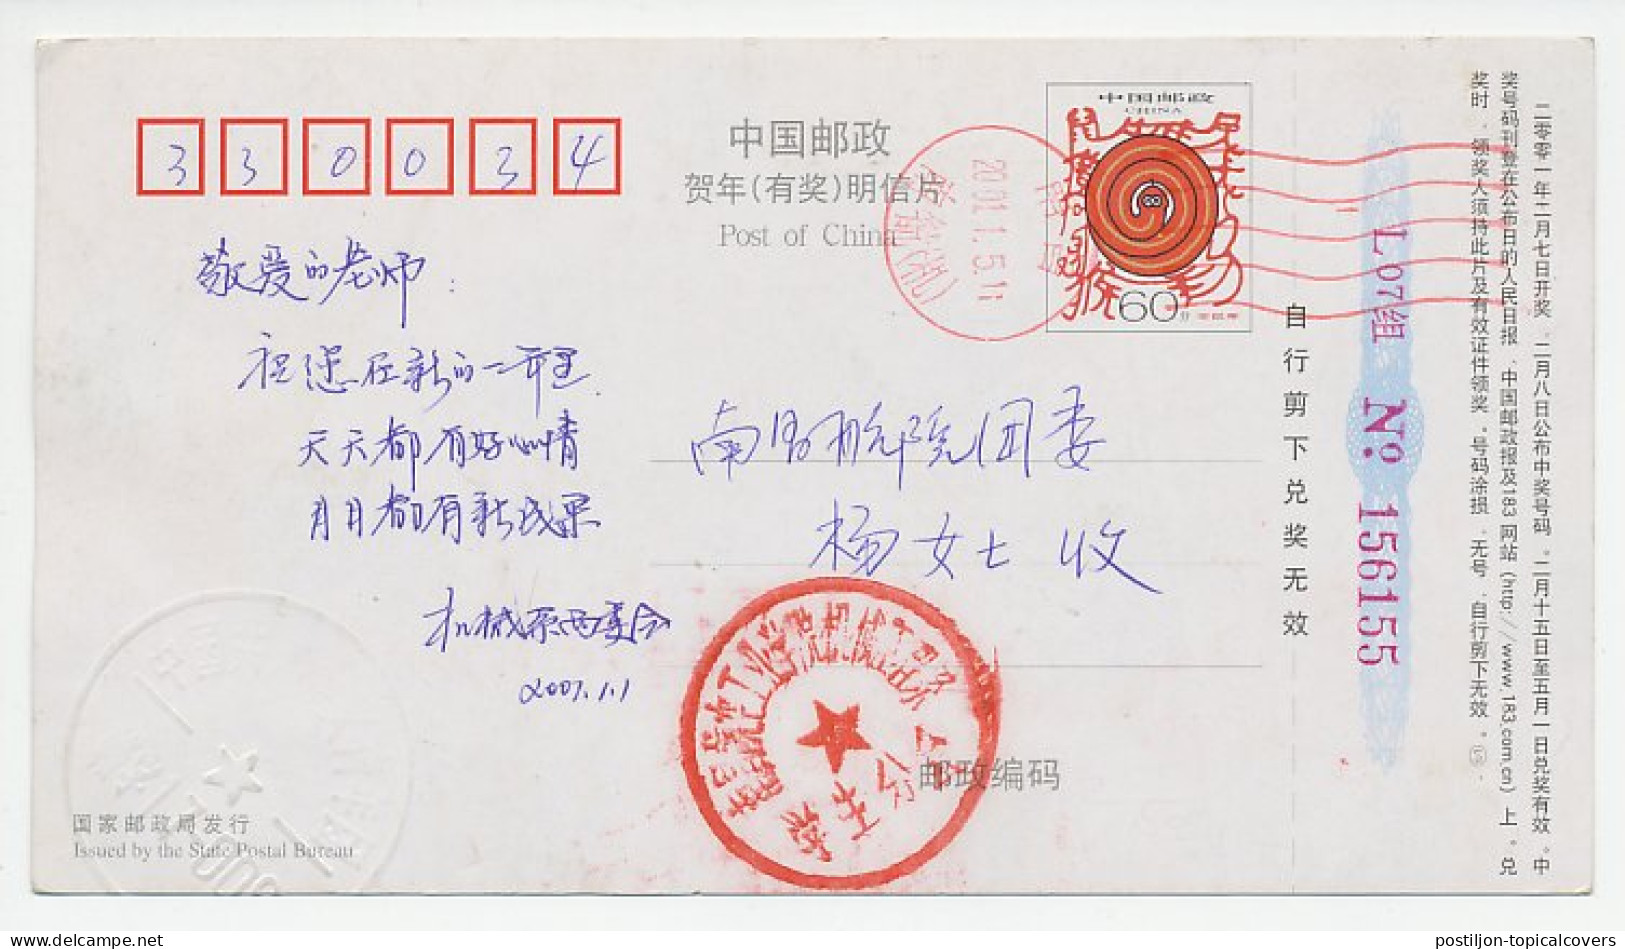 330034
中国邮政
贺年(有奖)明信片
Post of China
中国邮政
CHINA
60分
2001.1.5.1
敬爱的老师:
祝您在新的一年里
天天都有好心情
月月都有新成果
2001.1.1
南昌航院团委
杨女士 收
邮政编码
国家邮政局发行
Issued by the State Postal Bureau
自行剪下兑奖无效
L07组 No: 156155
二零零一年二月七日开奖.二月八日公布中奖号码.二月十五日至五月一日兑奖有效.中
奖号码刊登在公布日的人民日报.中国邮政报及183网站(http://www.183.com.cn)上.兑
奖时.领奖人须持此片及有效证件领奖.号码涂损.无号.自行剪下无效.⑤
postiljon-topicalcovers